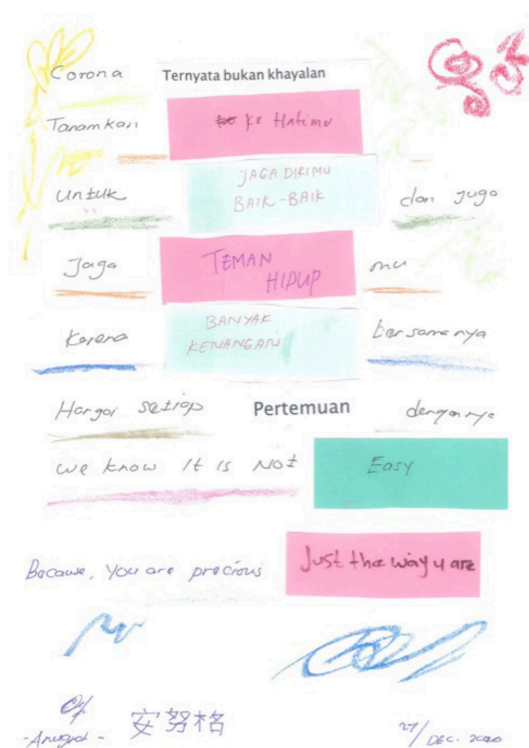 Corona Ternyata bukan khayalan
Tanamkan ke Hatimu
untuk JAGA DIRIMU BAIK-BAIK dan juga
Jaga TEMAN HIDUP mu
Karena BANYAK KENANGAN bersamanya
Hargai setiap Pertemuan dengannya
We know It is NOt Easy
Because, You are precious Just the way u are
安努格
27/DEC. 2020